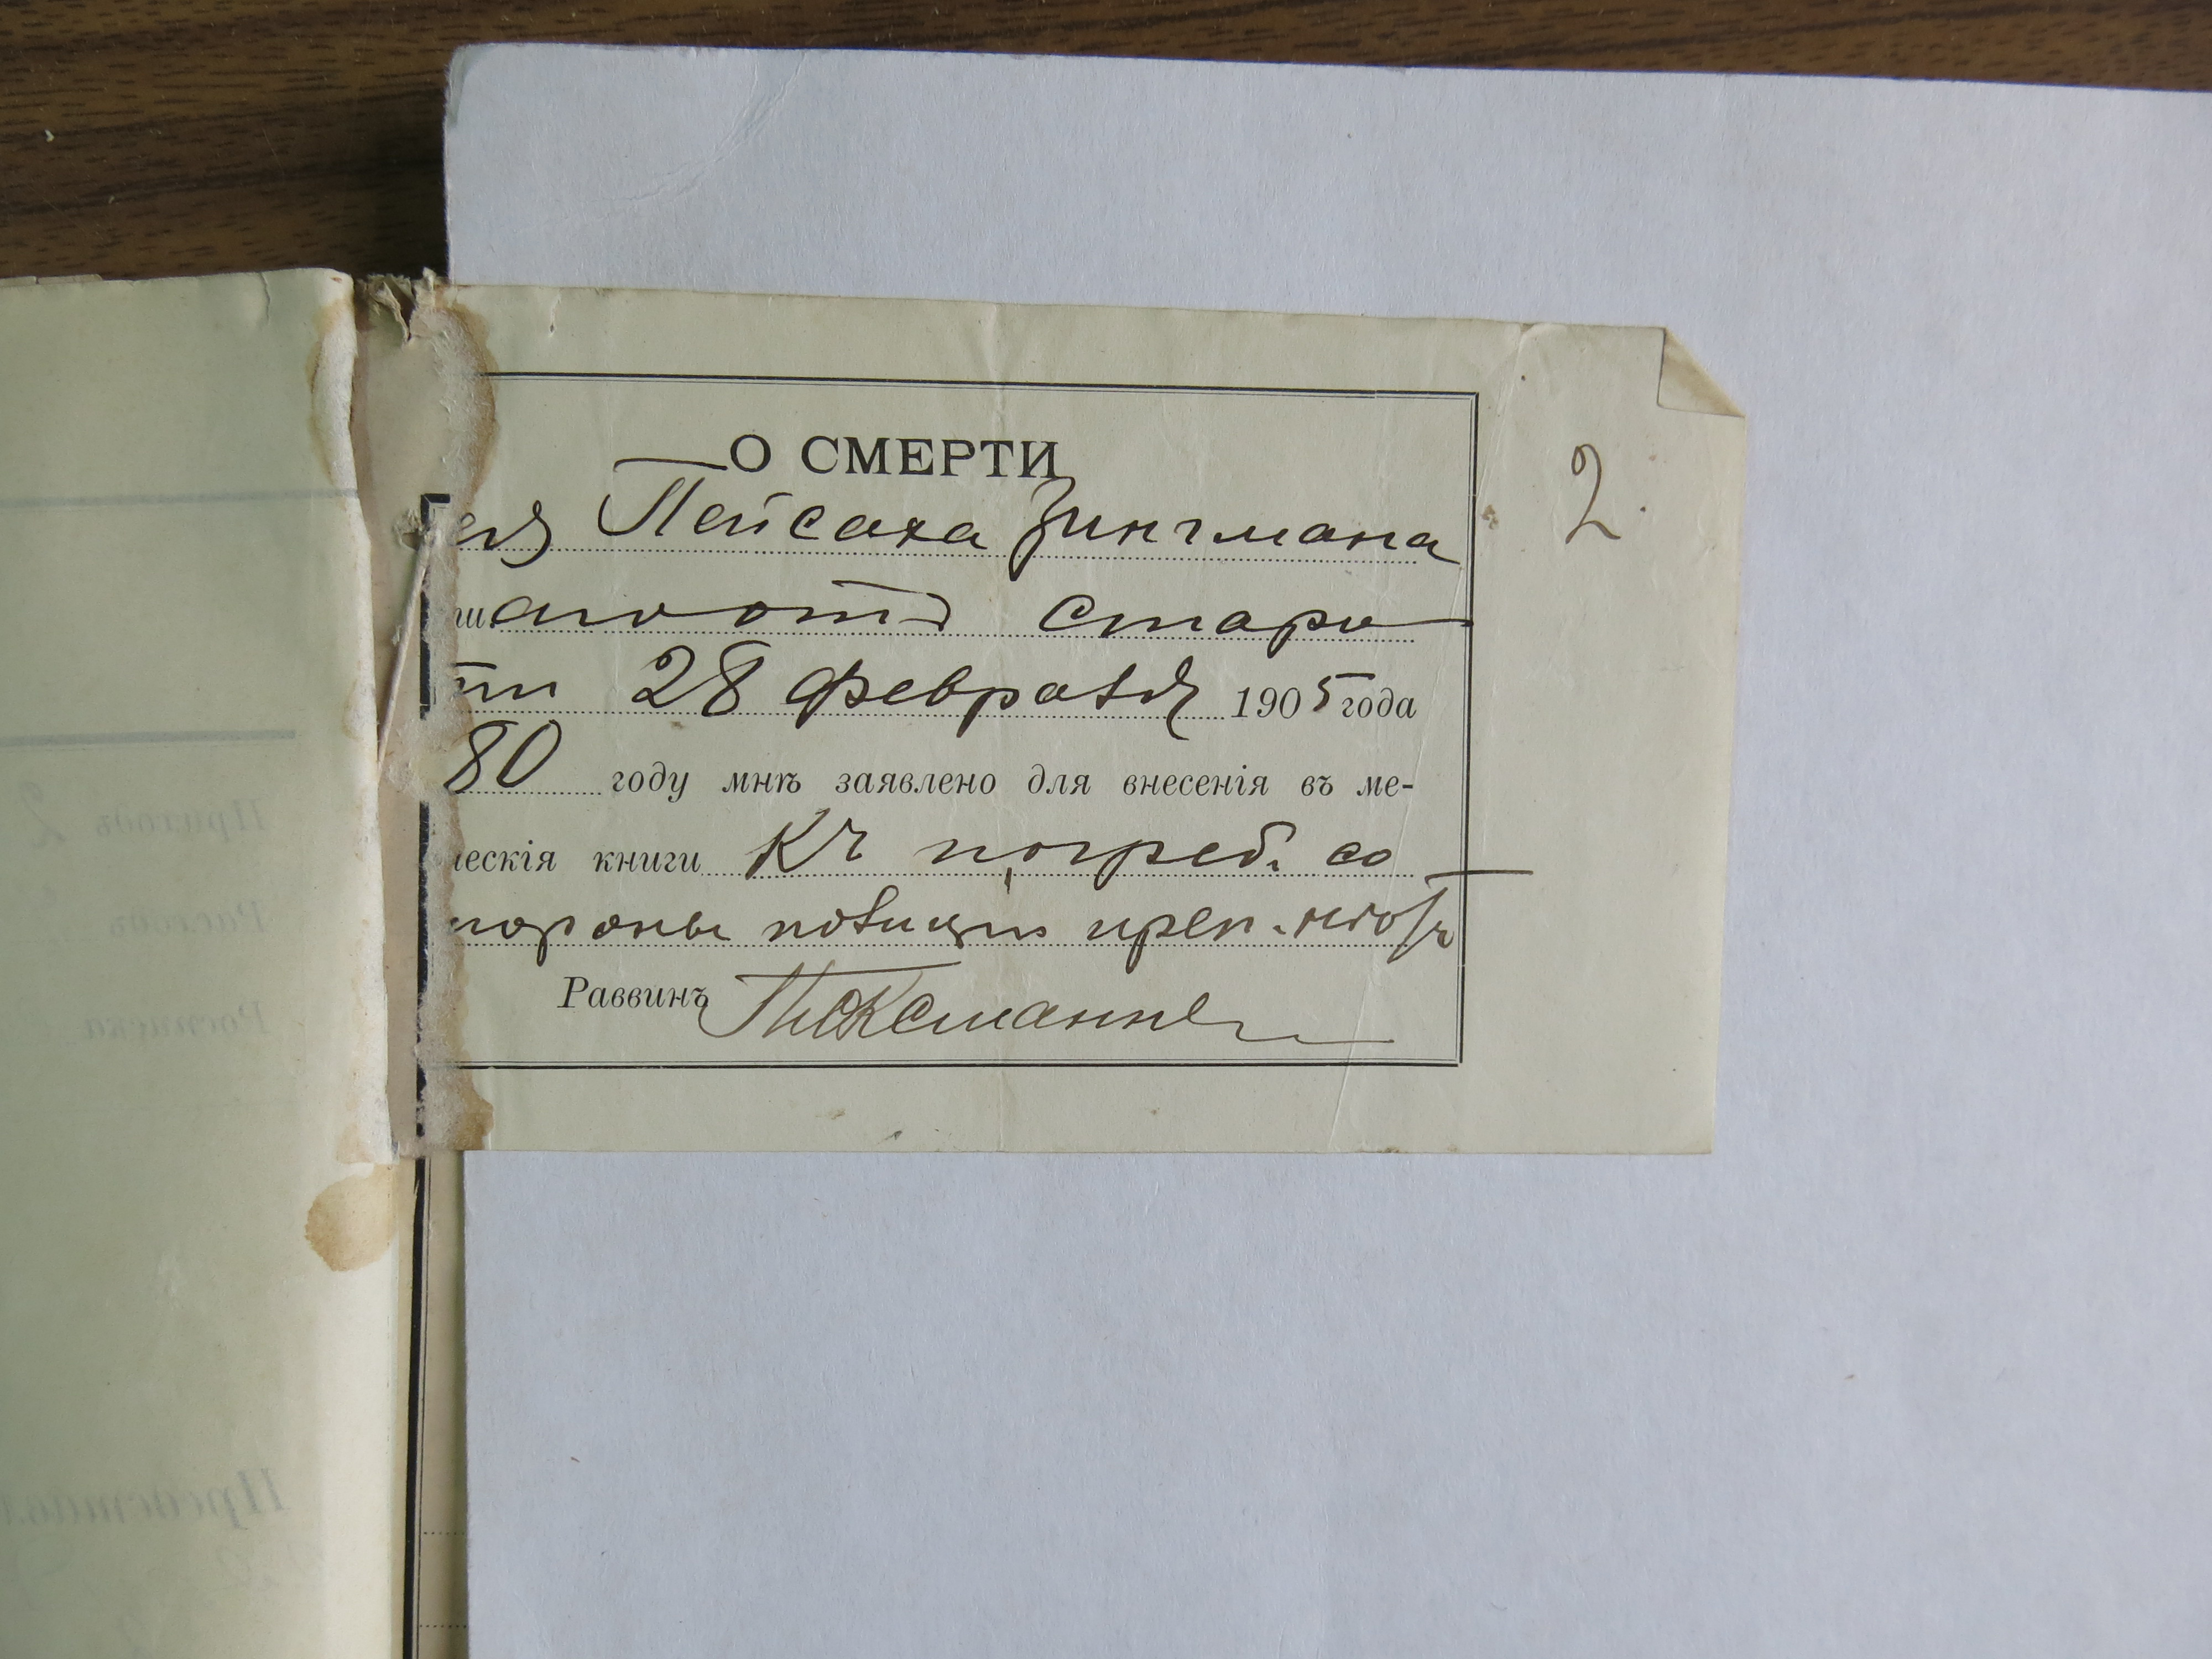 О СМЕРТИ
Пейсаха Зингмана
2.
шаго отъ старо
сти 28 февраля 1905 года
80 году мнѣ заявлено для внесенія въ ме-
ческія книги Къ погреб. со
стороны полиціи преп. нѣтъ
Раввинъ